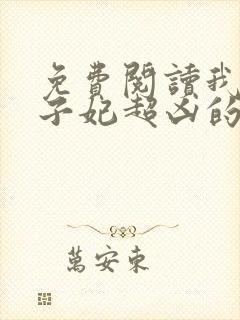 免費閱讀我
子妃超凶的
萬安東